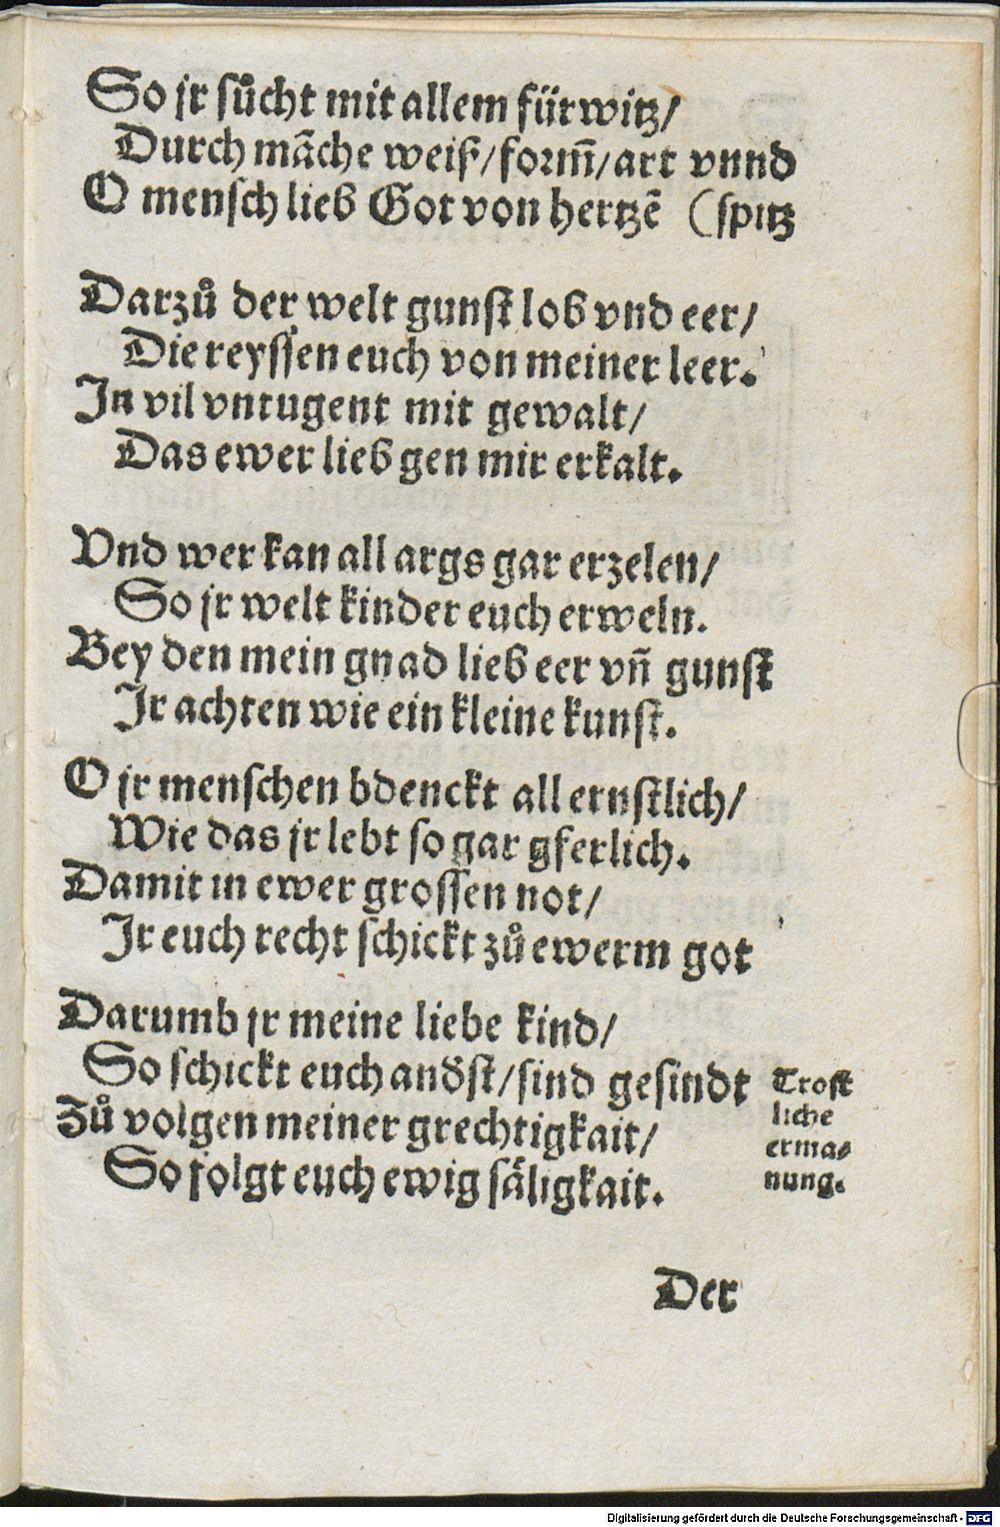 So jr sůcht mit allem fürwitz/
Durch mãche weiß/form̃/art vnnd
O mensch lieb Got von hertzẽ (spitz
Darzů der welt gunst lob vnd eer/
Die reyssen euch von meiner leer.
In vil vntugent mit gewalt/
Das ewer lieb gen mir erkalt.
Vnd wer kan all args gar erzelen/
So jr welt kinder euch erweln.
Bey den mein gnad lieb eer vñ gunst
Ir achten wie ein kleine kunst.
O jr menschen bdenckt all ernstlich/
Wie das jr lebt so gar gferlich.
Damit in ewer grossen not/
Ir euch recht schickt zů ewerm got
Darumb jr meine liebe kind/
So schickt euch anđst/sind gesindt
Zů volgen meiner grechtigkait/
So folgt euch ewig säligkait.
Trost
liche
erma-
nung.
Der
Digitalisierung gefördert durch die Deutsche Forschungsgemeinschaft - DFG